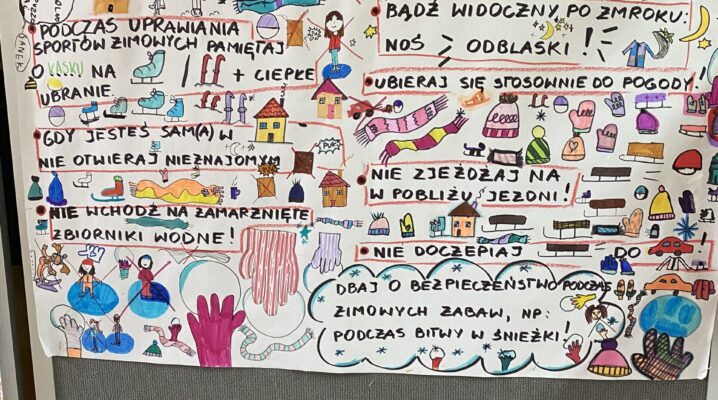 PODCZAS UPRAWIANIA
SPORTÓW ZIMOWYCH PAMIĘTAJ
O KASKU NA / + CIEPŁE
UBRANIE.
GDY JESTEŚ SAM(A) W
NIE OTWIERAJ NIEZNAJOMYM
PUK!
NIE WCHODŹ NA ZAMARZNIĘTE
ZBIORNIKI WODNE!
BĄDŹ WIDOCZNY PO ZMROKU:
NOŚ ODBLASKI!
UBIERAJ SIĘ STOSOWNIE DO POGODY!
NIE ZJEŻDŻAJ NA
W POBLIŻU JEZDNI!
NIE DOCZEPIAJ DO !
DBAJ O BEZPIECZEŃSTWO PODCZAS
ZIMOWYCH ZABAW, NP:
PODCZAS BITWY W ŚNIEŻKI!